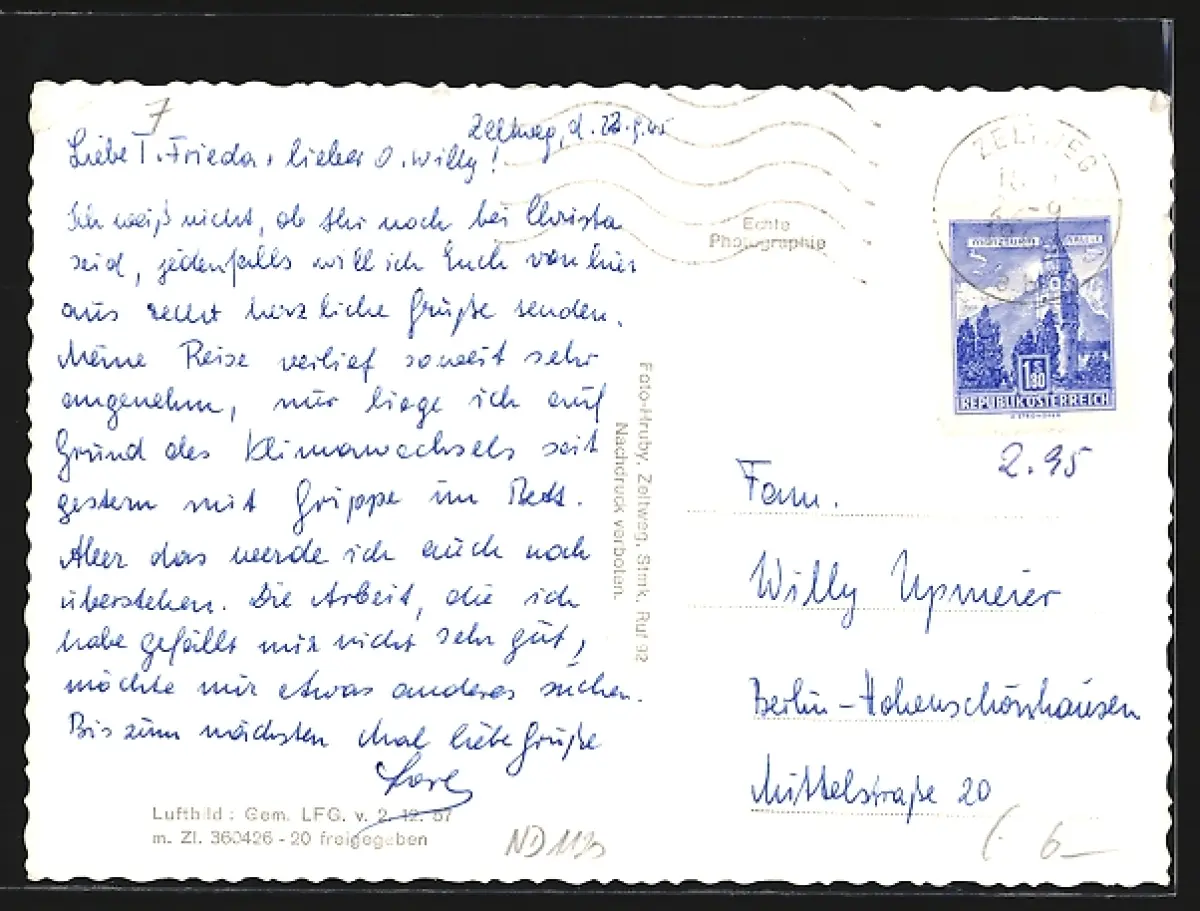 7
Zeltweg, d.
Liebe T. Frieda, lieber O. Willy!
Ich weiß nicht, ob Ihr noch bei Christa
seid, jedenfalls will ich Euch von hier
aus recht herzliche Grüße senden.
Meine Reise verlief soweit sehr
angenehm, nur liege ich auf
Grund des Klimawechsels seit
gestern mit Grippe im Bett.
Aber das werde ich auch noch
überstehen. Die Arbeit, die ich
habe gefällt mir nicht sehr gut,
möchte mir etwas anderes suchen.
Bis zum nächsten Mal liebe Grüße
Luftbild: Gem. LFG. v. 2. 12. 57
m. Zl. 360426-20 freigegeben
Foto-Hruby, Zeltweg, Stmk. Ruf 92
Nachdruck verboten.
Echte
Photographie
ZELTWEG
1 S 80
REPUBLIK ÖSTERREICH
2.95
Fam.
Willy Upmeier
Berlin-Hohenschönhausen
Mittelstraße 20
6